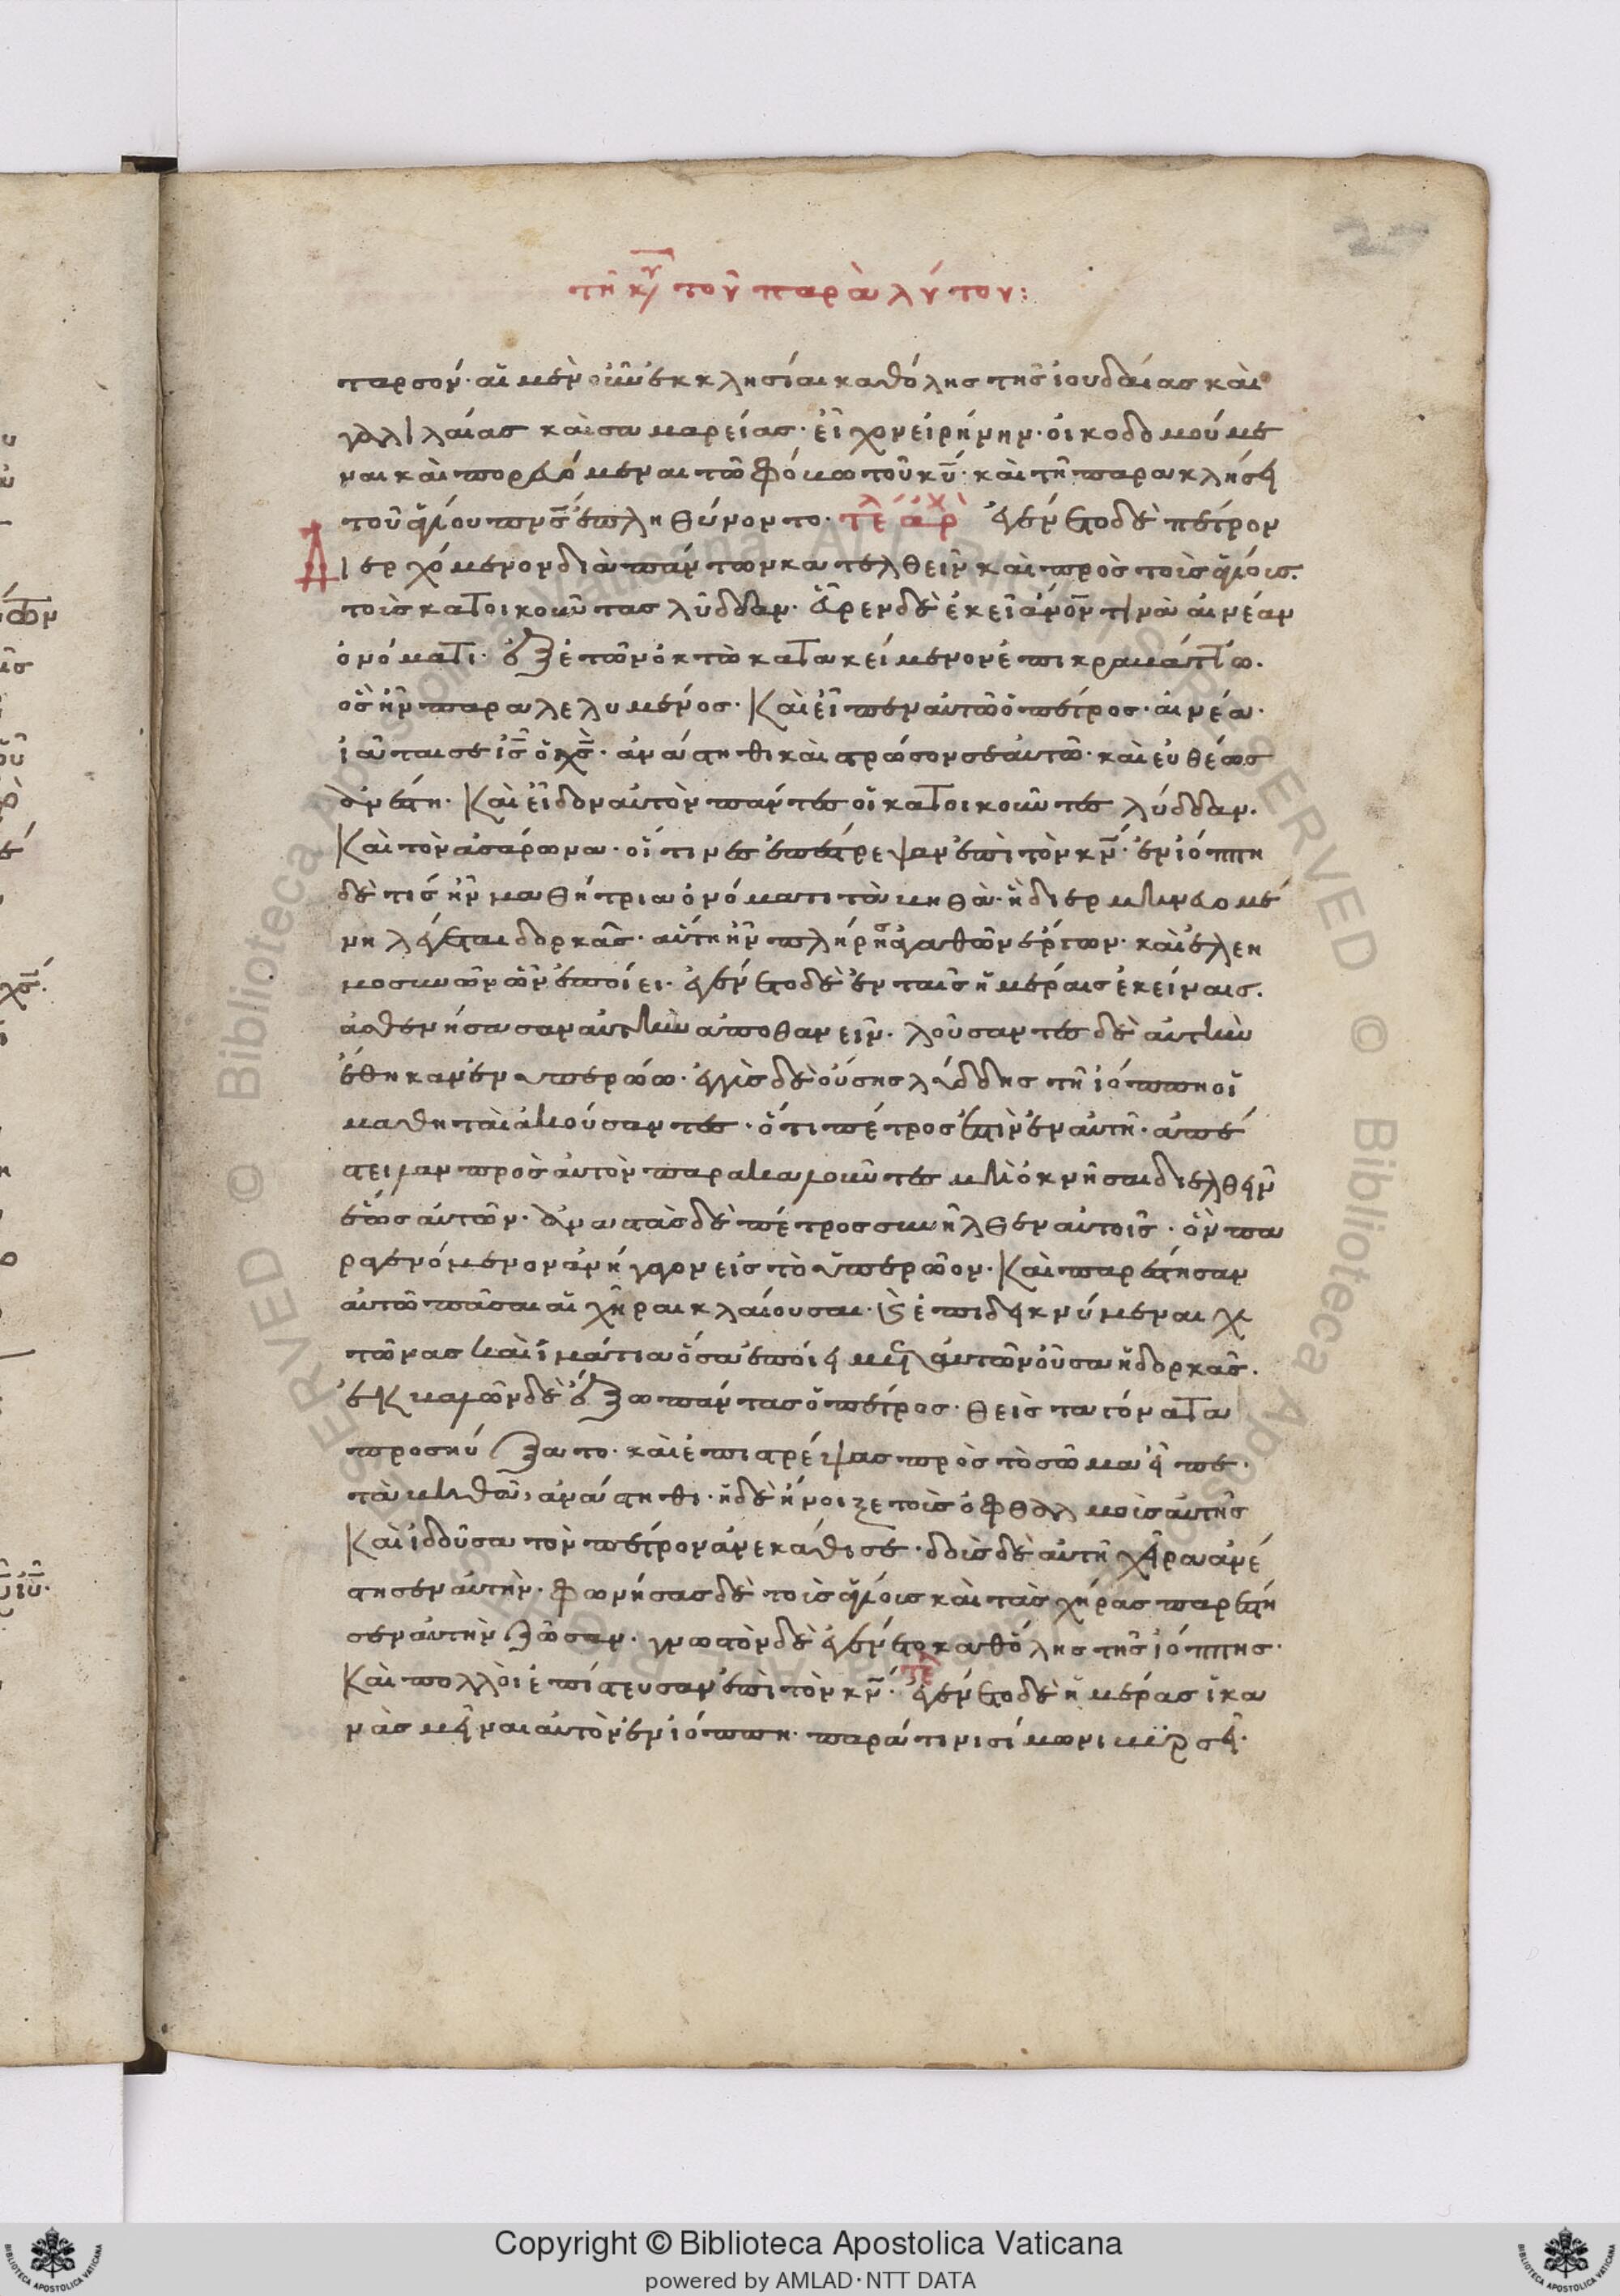 τῆ κυ τοῦ παραλύτου:
ταρσόν· αἵ μὲν οὖν ἐκκλησίαι καθόλης τῆς ἰουδαίας καὶ
γαλιλαίας καὶ σαμαρείας· εἶχον εἰρήνην· οἰκοδομούμε
ναι καὶ πορευόμεναι τῶ φόβω τοῦ κυ· καὶ τῆ παρακλήσει
τοῦ ἁγίου πνς ἐπληθύνοντο· τελ αρχ ἐγένετο δὲ πέτρον
Διερχόμενον διὰ πάντων κατελθεῖν καὶ πρὸς τοὺς ἁγίους·
τοὺς κατοικοῦντας λύδδαν· εὗρεν δὲ ἐκεῖ ἄνον τινὰ αἰνέαν
ὀνόματι· ἐξ ἐτῶν ὀκτὼ κατακείμενον ἐπι κραβάττω·
ὃς ἦν παραλελυμένος· Καὶ εἶπεν αὐτῶ ὁ πέτρος· αἰνέα·
ἰᾶται σε ις ὁ χς· ἀνάστηθι καὶ στρῶσον σεαυτῶ· καὶ εὐθέως
ἀνέστη· Καὶ εἶδον αὐτὸν πάντες οἱ κατοικοῦντες λύδδαν·
Καὶ τὸν ἀσάρωνα· οἵτινες ἐπέστρεψαν ἐπὶ τὸν κν· ἐν ἰόππη
δὲ τίς ἦν μαθήτρια ὀνόματι ταβηθὰ· ἡ διερμηνευομέ
νη λέγεται δορκᾶς· αὕτη ἦν πλήρης ἀγαθῶν ἔργων· καὶ ἐλεη
μοσυνῶν ὧν ἐποίει· ἐγένετο δὲ ἐν ταῖς ἡμέραις ἐκείναις·
ἀσθενήσασαν αὐτὴν ἀποθανεῖν· λούσαντες δὲ αὐτὴν
ἔθηκαν ἐν ὑπερώω· ἐγγὺς δὲ οὔσης λύδδης τῆ ἰόππη οἱ
μαθηταὶ ἀκούσαντες· ὅτι πέτρος ἐστὶν ἐν αὐτῆ· ἀπέ
στειλαν πρὸς αὐτὸν παρακαλοῦντες μὴ ὀκνῆσαι διελθεῖν
ἕως αὐτῶν· ἀναστὰς δὲ πέτρος συνῆλθεν αὐτοῖς· ὃν πα
ραγενόμενον ἀνήγαγον εἰς τὸ ὑπερῶον· Καὶ παρέστησαν
αὐτῶ πᾶσαι αἱ χῆραι κλαίουσαι· ϗ ἐπιδεικνύμεναι χι
τῶνας καὶ ἱμάτια ὅσα ἐποίει μετ αὐτῶν οὖσα ἡ δορκᾶς·
ἐκβαλὼν δὲ ἔξω πάντας ὁ πέτρος· θεὶς τα γόνατα
προσηύξατο· καὶ ἐπιστρέψας πρὸς τὸ σῶμα εἶπε·
ταβηθὰ, ἀνάστηθι· ἡ δὲ ἤνοιξε τοὺς ὀφθαλμοὺς αὐτῆς
Καὶ ἰδοῦσα τὸν πέτρον ἀνεκάθισε· δοὺς δὲ αὐτῆ χεῖρα ἀνέ
στησεν αὐτὴν· φωνήσας δὲ τοὺς ἁγίους καὶ τὰς χήρας παρέστη
σεν αὐτὴν ζῶσαν· γνωστὸν δὲ ἐγένετο καθ ὅλης τῆς ἰόππης·
Καὶ πολλοὶ ἐπίστευσαν ἐπὶ τὸν κν· τελ ἐγένετο δὲ ἡμέρας ἱκα
νὰς μεῖναι αὐτὸν ἐν ἰόππη· παρά τινι σίμωνι βυρσεῖ·
Copyright © Biblioteca Apostolica Vaticana
powered by AMLAD·NTT DATA